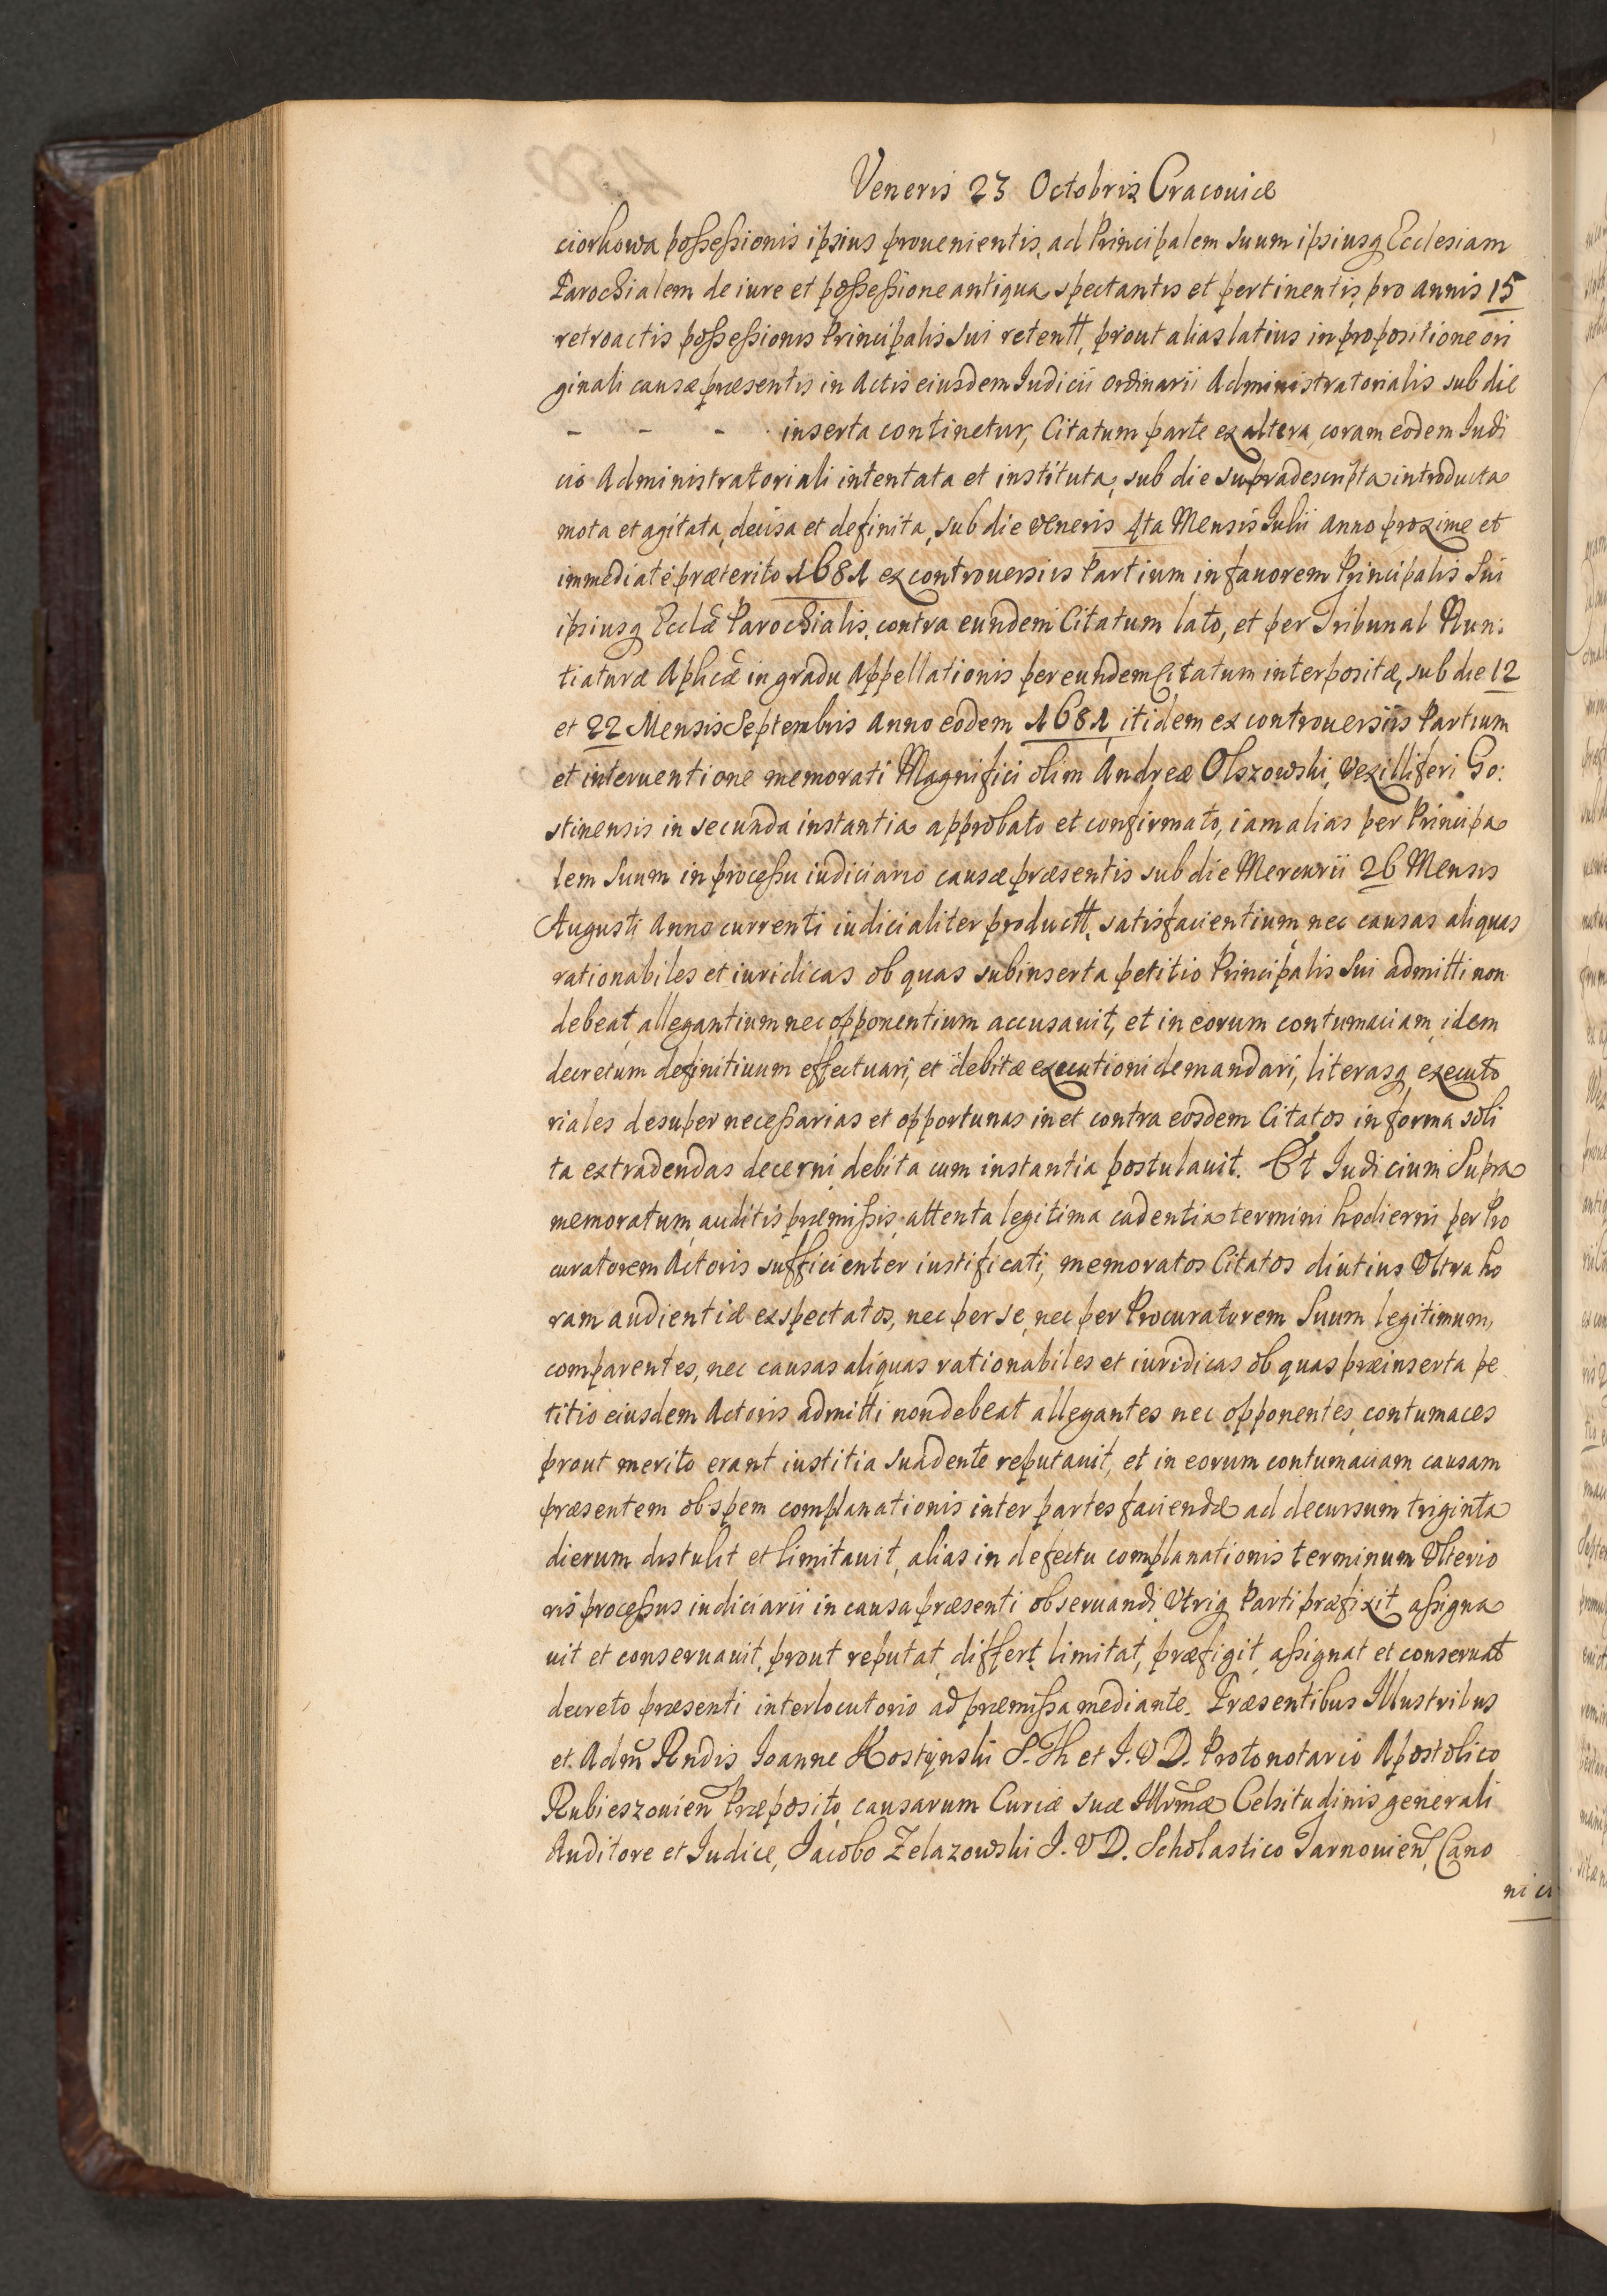 Veneris 23 Octobris Cracoviæ
ciorkowa possessionis ipsius prouenientis, ad Principalem suum ipsiusq Ecclesiam
Parochialem de iure et possessione antiqua spectantis et pertinentis pro annis 15
retroactis possessionis Principalis sui retentt, prout alias latius in propositione ori
ginali causæ præsentis in Actis eiusdem Iudicii ordinarii Administratorialis sub die
- - - inserta continetur, Citatum parte ex altera, coram eodem Iudi
cio Administratoriali intentata et instituta, sub die supradescripta introducta
mota et agitata, decisa et definita, sub die Veneris 4ta Mensis Iulii anno proxime et
immediate præterito 1681 ex controuersiis Partium in fauorem Principalis sui
ipsiusq Ecclæ Parochialis, contra eundem Citatum lato, et per Tribunal Nun:
tiaturæ Aplicæ in gradu Appellationis per eundem Citatum interpositæ, sub die 12
et 22 Mensis Septembris Anno eodem 1681, itidem ex controuersiis Partium
et interuentione memorati Magnifici olim Andreæ Olszowski, Vexilliferi Go:
stinensis in secunda instantia approbato et confirmato, iam alias per Principa
lem Suum in processu iudiciario causæ præsentis sub die Mercurii 26 Mensis
Augusti Anno currenti iudicialiter productt, satisfacientium nec causas aliquas
rationabiles et iuridicas ob quas subinserta petitio Principalis Sui admitti non
debeat, allegantium nec opponentium accusauit, et in eorum contumaciam, idem
decretum definitiuum effectuari, et debitæ executioni demandari, literasq, executo
riales desuper necessarias et opportunas in et contra eosdem Citatos in forma soli
ta extradendas decerni debita cum instantia postulauit. Et Iudicium Supra
memoratum, auditis præmissis, attenta legitima cadentia termini hodierni per Pro
curatorem Actoris sufficienter iustificati, memoratos Citatos diutius Vltra ho
ram audientiæ exspectatos, nec per se, nec per Procuratorem Suum legitimum,
comparentes, nec causas aliquas rationabiles et iuridicas ob quas præinserta pe
titio eiusdem Actoris admitti non debeat allegantes nec opponentes, contumaces
prout merito erant iustitia suadente reputauit, et in eorum contumaciam causam
præsentem ob spem complanationis inter partes faciendæ ad decursum triginta
dierum distulit et limitauit, alias in defectu complanationis terminum Vlterio
ris processus iudiciarii in causa præsenti obseruandi Vtriq Parti præfixit assigna
uit et conseruauit, prout reputat, differt, limitat, præfigit, assignat et conseruat
decreto præsenti interlocutorio ad præmissa mediante. Præsentibus Illustribus
et Adm̃ Rndis Ioanne Kostynski S. Th et I. V D. Protonotario Apostolico
Rubieszouien̄ Præposito, causarum Curiæ suæ Illr̃mæ Celsitudinis generali
Auditore et Iudice, Iacobo Zelazowski I. V D. Scholastico Tarnouien̄, Cano
nico